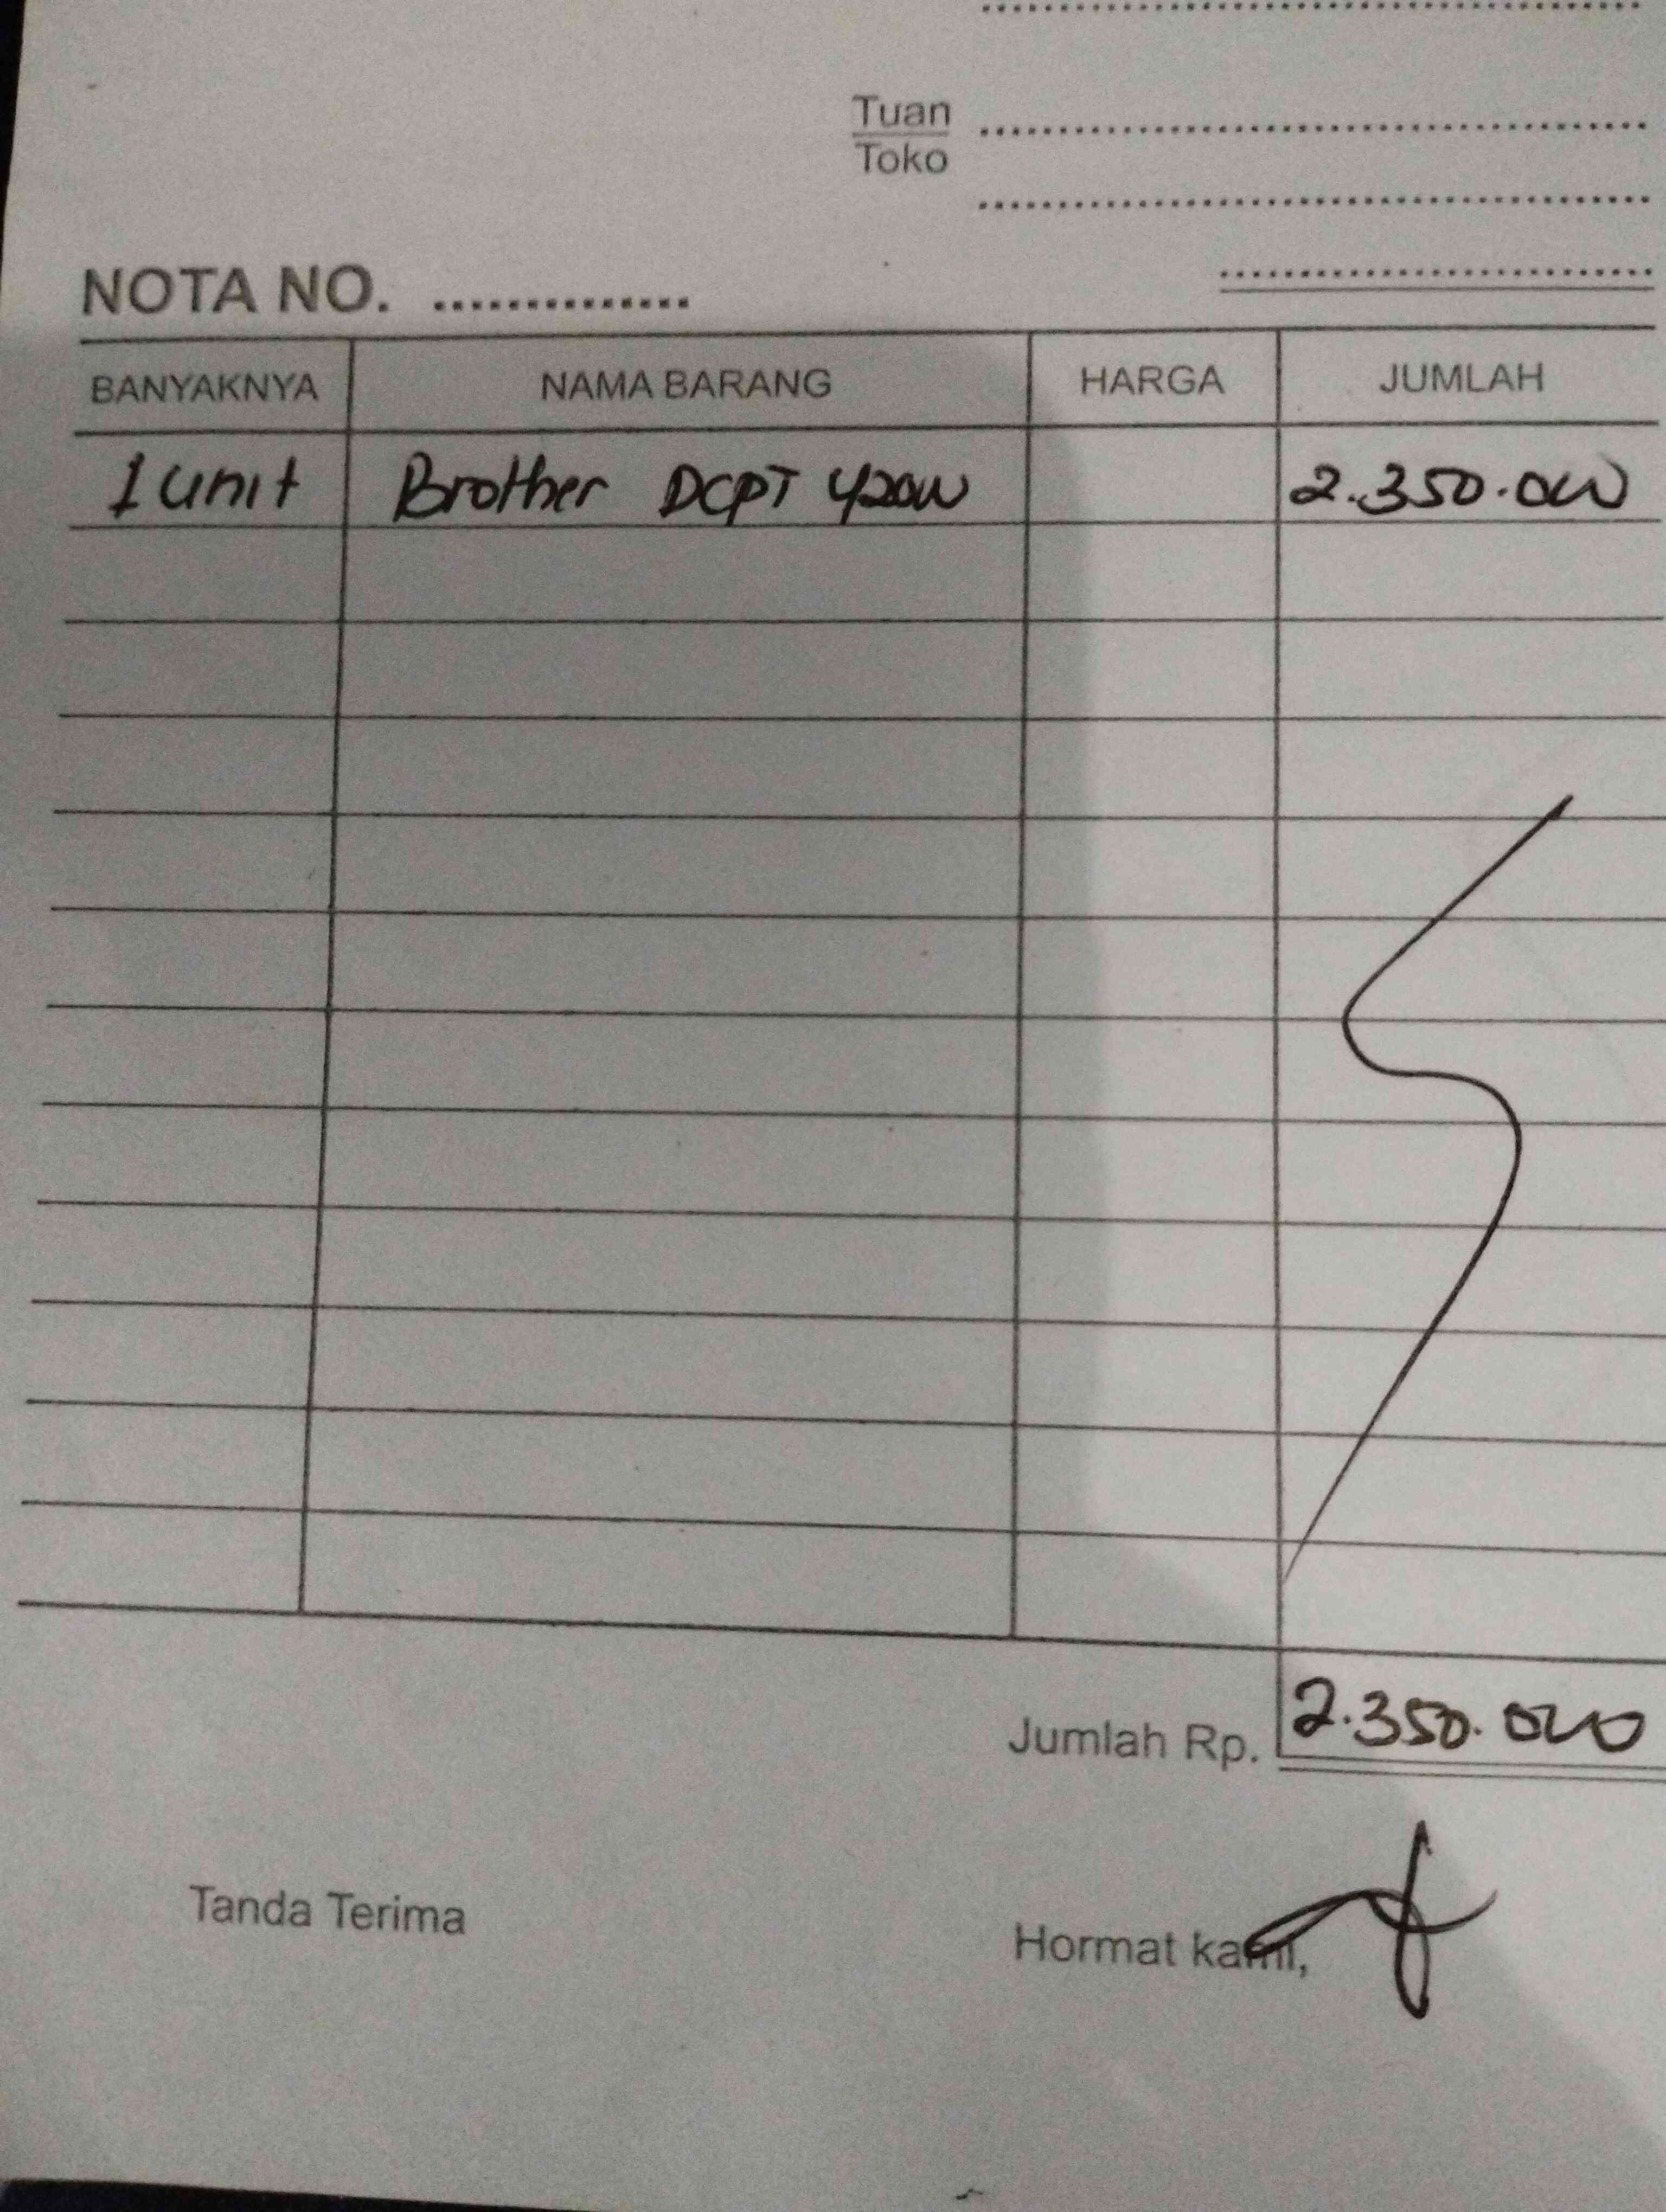 Tuan
Toko
NOTA NO. ..............
BANYAKNYA NAMA BARANG HARGA JUMLAH
1 unit Brother DCPT 420W 2.350.000
Jumlah Rp. 2.350.000
Tanda Terima
Hormat kami,